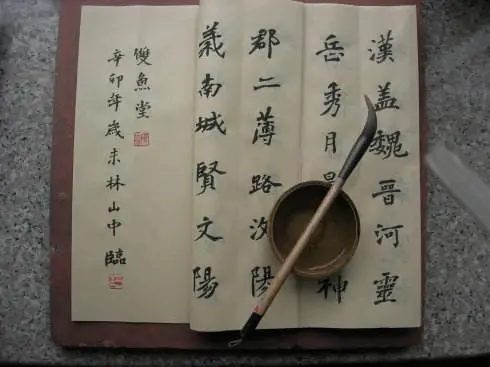 漢盖魏晉河靈
岳秀月神
郡二薄路汝陽
義南城賢文陽
雙魚堂
辛卯年歲末林山中臨